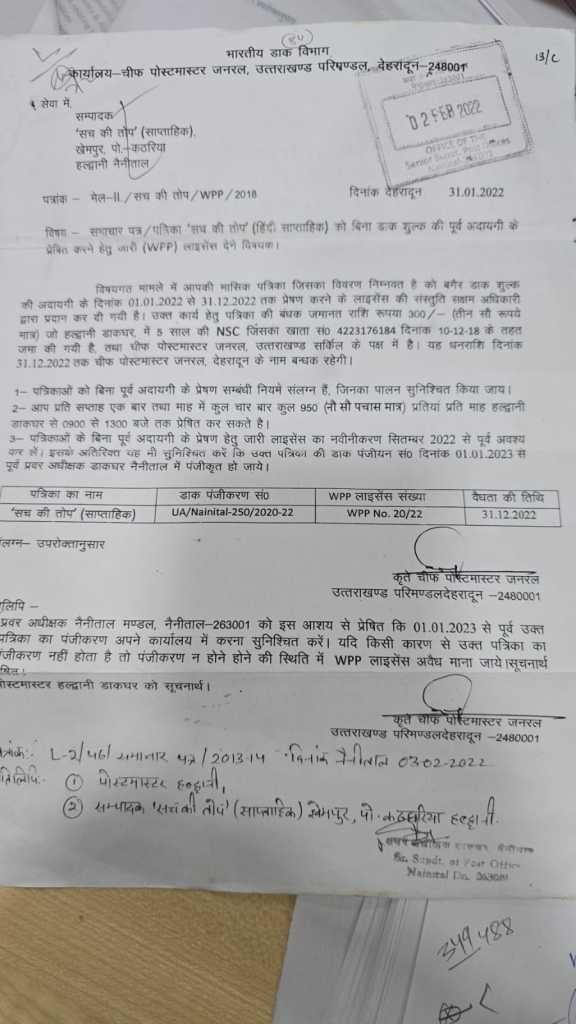 (६५)
भारतीय डाक विभाग
कार्यालय–चीफ पोस्टमास्टर जनरल, उत्तराखण्ड परिमण्डल, देहरादून–248001
13/C
सेवा में,
सम्पादक
'सच की तोप' (साप्ताहिक),
खेमपुर, पो.–कठरिया
हल्द्वानी नैनीताल
02 FEB 2022
OFFICE OF THE
Senior Supdt. Post Offices
पत्रांक – मेल–II / सच की तोप / WPP / 2018
दिनांक देहरादून 31.01.2022
विषय – समाचार पत्र / पत्रिका 'सच की तोप' (हिंदी साप्ताहिक) को बिना डाक शुल्क की पूर्व अदायगी के
प्रेषित करने हेतु जारी (WPP) लाइसेंस देने विषयक।
विषयगत मामले में आपकी मासिक पत्रिका जिसका विवरण निम्नवत है को बगैर डाक शुल्क
की अदायगी के दिनांक 01.01.2022 से 31.12.2022 तक प्रेषण करने के लाइसेंस की संस्तुति सक्षम अधिकारी
द्वारा प्रदान कर दी गयी है। उक्त कार्य हेतु पत्रिका की बंधक जमानत राशि रूपया 300/– (तीन सौ रूपये
मात्र) जो हल्द्वानी डाकघर, में 5 साल की NSC जिसका खाता सं0 4223176184 दिनांक 10-12-18 के तहत
जमा की गयी है, तथा चीफ पोस्टमास्टर जनरल, उत्तराखण्ड सर्किल के पक्ष में है। यह धनराशि दिनांक
31.12.2022 तक चीफ पोस्टमास्टर जनरल, देहरादून के नाम बन्धक रहेगी।
1– पत्रिकाओं को बिना पूर्व अदायगी के प्रेषण सम्बंधी नियमे संलग्न हैं, जिनका पालन सुनिश्चित किया जाय।
2– आप प्रति सप्ताह एक बार तथा माह में कुल चार बार कुल 950 (नौ सौ पचास मात्र) प्रतियां प्रति माह हल्द्वानी
डाकघर से 0900 से 1300 बजे तक प्रेषित कर सकते है।
3– पत्रिकाओं के बिना पूर्व अदायगी के प्रेषण हेतु जारी लाइसेंस का नवीनीकरण सितम्बर 2022 से पूर्व अवश्य
कर लें। इसके अतिरिक्त यह भी सुनिश्चित करें कि उक्त पत्रिका की डाक पंजीयन सं0 दिनांक 01.01.2023 से
पूर्व प्रवर अधीक्षक डाकघर नैनीताल में पंजीकृत हो जाये।
पत्रिका का नाम डाक पंजीकरण सं0 WPP लाइसेंस संख्या वैधता की तिथि
'सच की तोप' (साप्ताहिक) UA/Nainital-250/2020-22 WPP No. 20/22 31.12.2022
लग्न– उपरोक्तानुसार
कृते चीफ पोस्टमास्टर जनरल
उत्तराखण्ड परिमण्डलदेहरादून –2480001
लिपि –
प्रवर अधीक्षक नैनीताल मण्डल, नैनीताल–263001 को इस आशय से प्रेषित कि 01.01.2023 से पूर्व उक्त
पत्रिका का पंजीकरण अपने कार्यालय में करना सुनिश्चित करें। यदि किसी कारण से उक्त पत्रिका का
जीकरण नहीं होता है तो पंजीकरण न होने होने की स्थिति में WPP लाइसेंस अवैध माना जाये।सूचनार्थ
पोस्टमास्टर हल्द्वानी डाकघर को सूचनार्थ।
कृते चीफ पोस्टमास्टर जनरल
उत्तराखण्ड परिमण्डलदेहरादून –2480001
L-2/46/समाचार पत्र/2013-14 दिनांक नैनीताल 03-02-2022
① पोस्टमास्टर हल्द्वानी,
② सम्पादक 'सच की तोप' (साप्ताहिक) खेमपुर, पो. कठघरिया हल्द्वानी.
Sr. Supdt. of Post Offices
Nainital Dn. 263001
349488